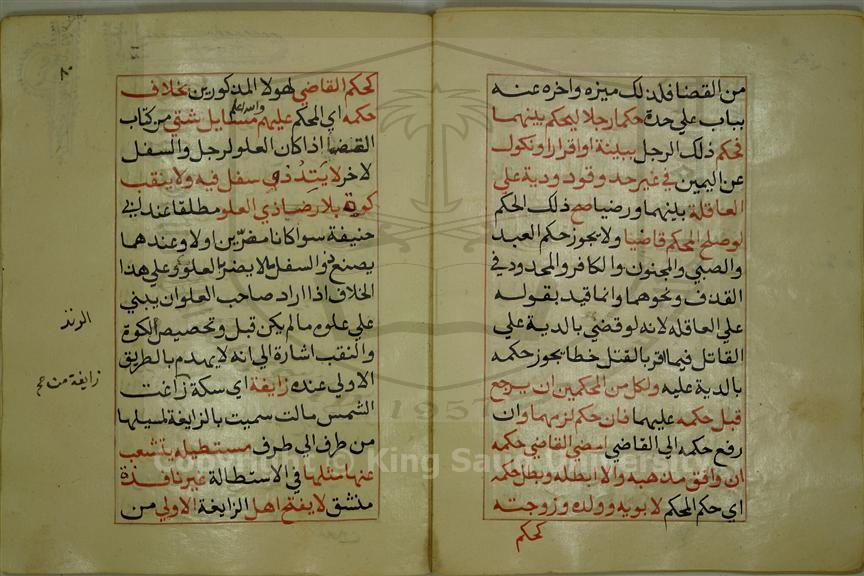 من القضا فلذلك ميزه واخره عنه
بباب علي حدة حكما رجلا ليحكم بينهما
فحكم ذلك الرجل ببينة او اقرار او نكول
عن اليمين في غير حد وقود ودية علي
العاقلة بينهما ورضيا صح ذلك الحكم
لو صلح المحكم قاضيا ولا يجوز حكم العبد
والصبي والمجنون والكافر والمحدود في
القذف ونحوهما وانما قيد بقوله
علي العاقله لانه لو قضي بالدية علي
القاتل فيما اقر بالقتل خطا يجوز حكمه
بالدية عليه ولكل من المحكمين ان يرجع
قبل حكمه عليهما فان حكم لزمهما وان
رفع حكمه الي القاضي امضي القاضي حكمه
ان وافق مذهبه والا ابطله وبطل حكمه
اي حكم المحكم لابويه وولده وزوجته
كحكم
٨٠
كحكم القاضي لهولا المذكورين بخلاف
حكمه اي المحكم عليهم والله اعلم مسايل شتي من كتاب
القضا اذا كان العلو لرجل والسفل
لاخر لا يتد ذو سفل فيه ولا ينقب
كوة بلا رضا ذي العلو مطلقا عند ابي
حنيفة سوا كانا مضرين اولا وعندهما
يصنع ذو السفل ما لا يضر بالعلو وعلي هذا
الخلاف اذا اراد صاحب العلو ان يبني
علي علوه ما لم يكن قبل وتحصيص الكوة
والنقب اشارة الي انه لا يهدم بالطريق
الاولي عنده زايغة اي سكة زاغت
الشمس مالت سميت بالزايغة لميلها
من طرف الي طرف مستطيله يتشعب
عنها مثلها في الاستطالة غير نافذة
منشق لا يفتح اهل الزايغة الاولي من
زايغة من
Copyright © King Saud University
1957